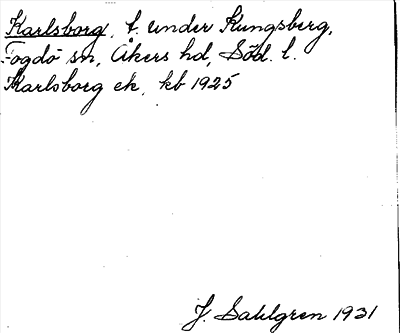 Karlsborg, t. under Kungsberg,
Fogdö sn, Åkers hd, Söd. l.
Karlsborg ek. kb 1925
J. Sahlgren 1931